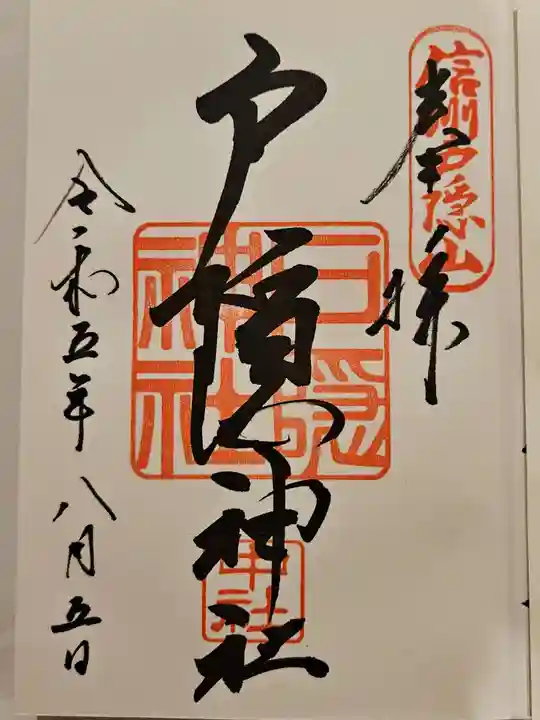 信州戸隠山
奉拝
戸隠神社
戸隠
神社
中社
令和五年 八月五日